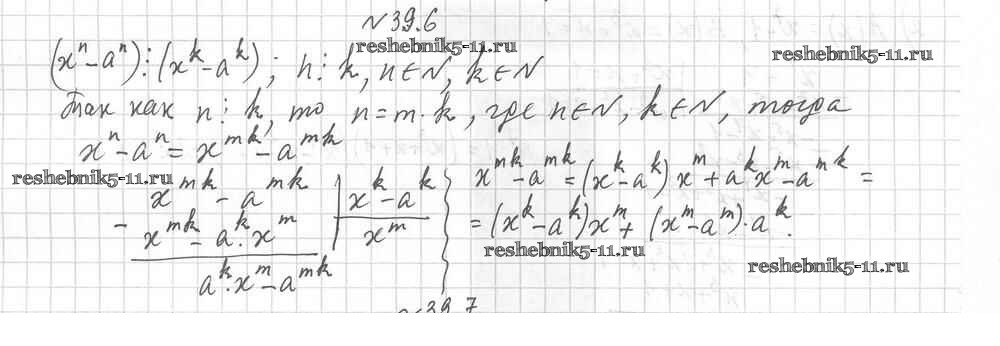 №39.6
reshebnik5-11.ru
(xⁿ-aⁿ)⋮(xᵏ-aᵏ); n⋮k, n∈N, k∈N
reshebnik5-11.ru
Так как n⋮k, то n=m·k, где n∈N, k∈N, тогда
xⁿ-aⁿ = xᵐᵏ-aᵐᵏ
reshebnik5-11.ru
xᵐᵏ - aᵐᵏ | xᵏ-aᵏ
- xᵐᵏ - aᵏ·xᵐ | xᵐ
aᵏ·xᵐ-aᵐᵏ
xᵐᵏ-aᵐᵏ = (xᵏ-aᵏ) xᵐ + aᵏxᵐ-aᵐᵏ =
= (xᵏ-aᵏ)xᵐ + (xᵐ-aᵐ)·aᵏ.
reshebnik5-11.ru
reshebnik5-11.ru
№39.7